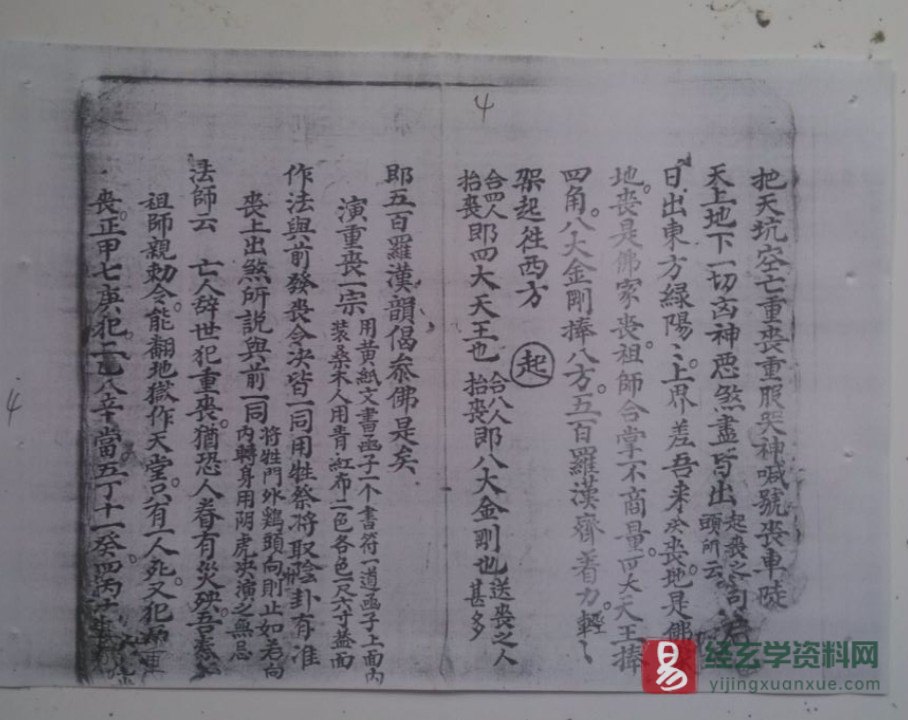 4
把天坑空亡重喪重服哭神喊號喪車陡
天上地下一切凶神惡煞盡皆出 起喪之句 頭所云
日出東方緑陽〻上界差吾来 喪地是佛
地。喪是佛家喪。祖師合掌不商量。四大天王捧
四角。八大金剛捧八方。五百羅漢齊着力。輕〻
架起徃西方 起
合四人抬喪 即四大天王也 合八人抬喪 即八大金剛也 送喪之人甚多
即五百羅漢韻偈叅佛是矣
演重喪一宗 用黄紙文書函子一个書符一道函子上面内 装桑木人用青紅布二色各色一尺六寸盖面
作法與前發喪令决皆一同用牲祭将取陰卦有准
喪上出煞所説與前一同 将牲門外鷄頭向則止如若向 内轉身用阴虎决演之無忌
法師云 亡人辞世犯重喪。猶恐人眷有災殃。吾奉
祖師親勅令。能翻地獄作天堂。只有一人死。又犯 重
喪。正甲七庚犯二乙八辛當五丁十一癸。四丙十
4
易
经玄学资料网
yijingxuanxue.com